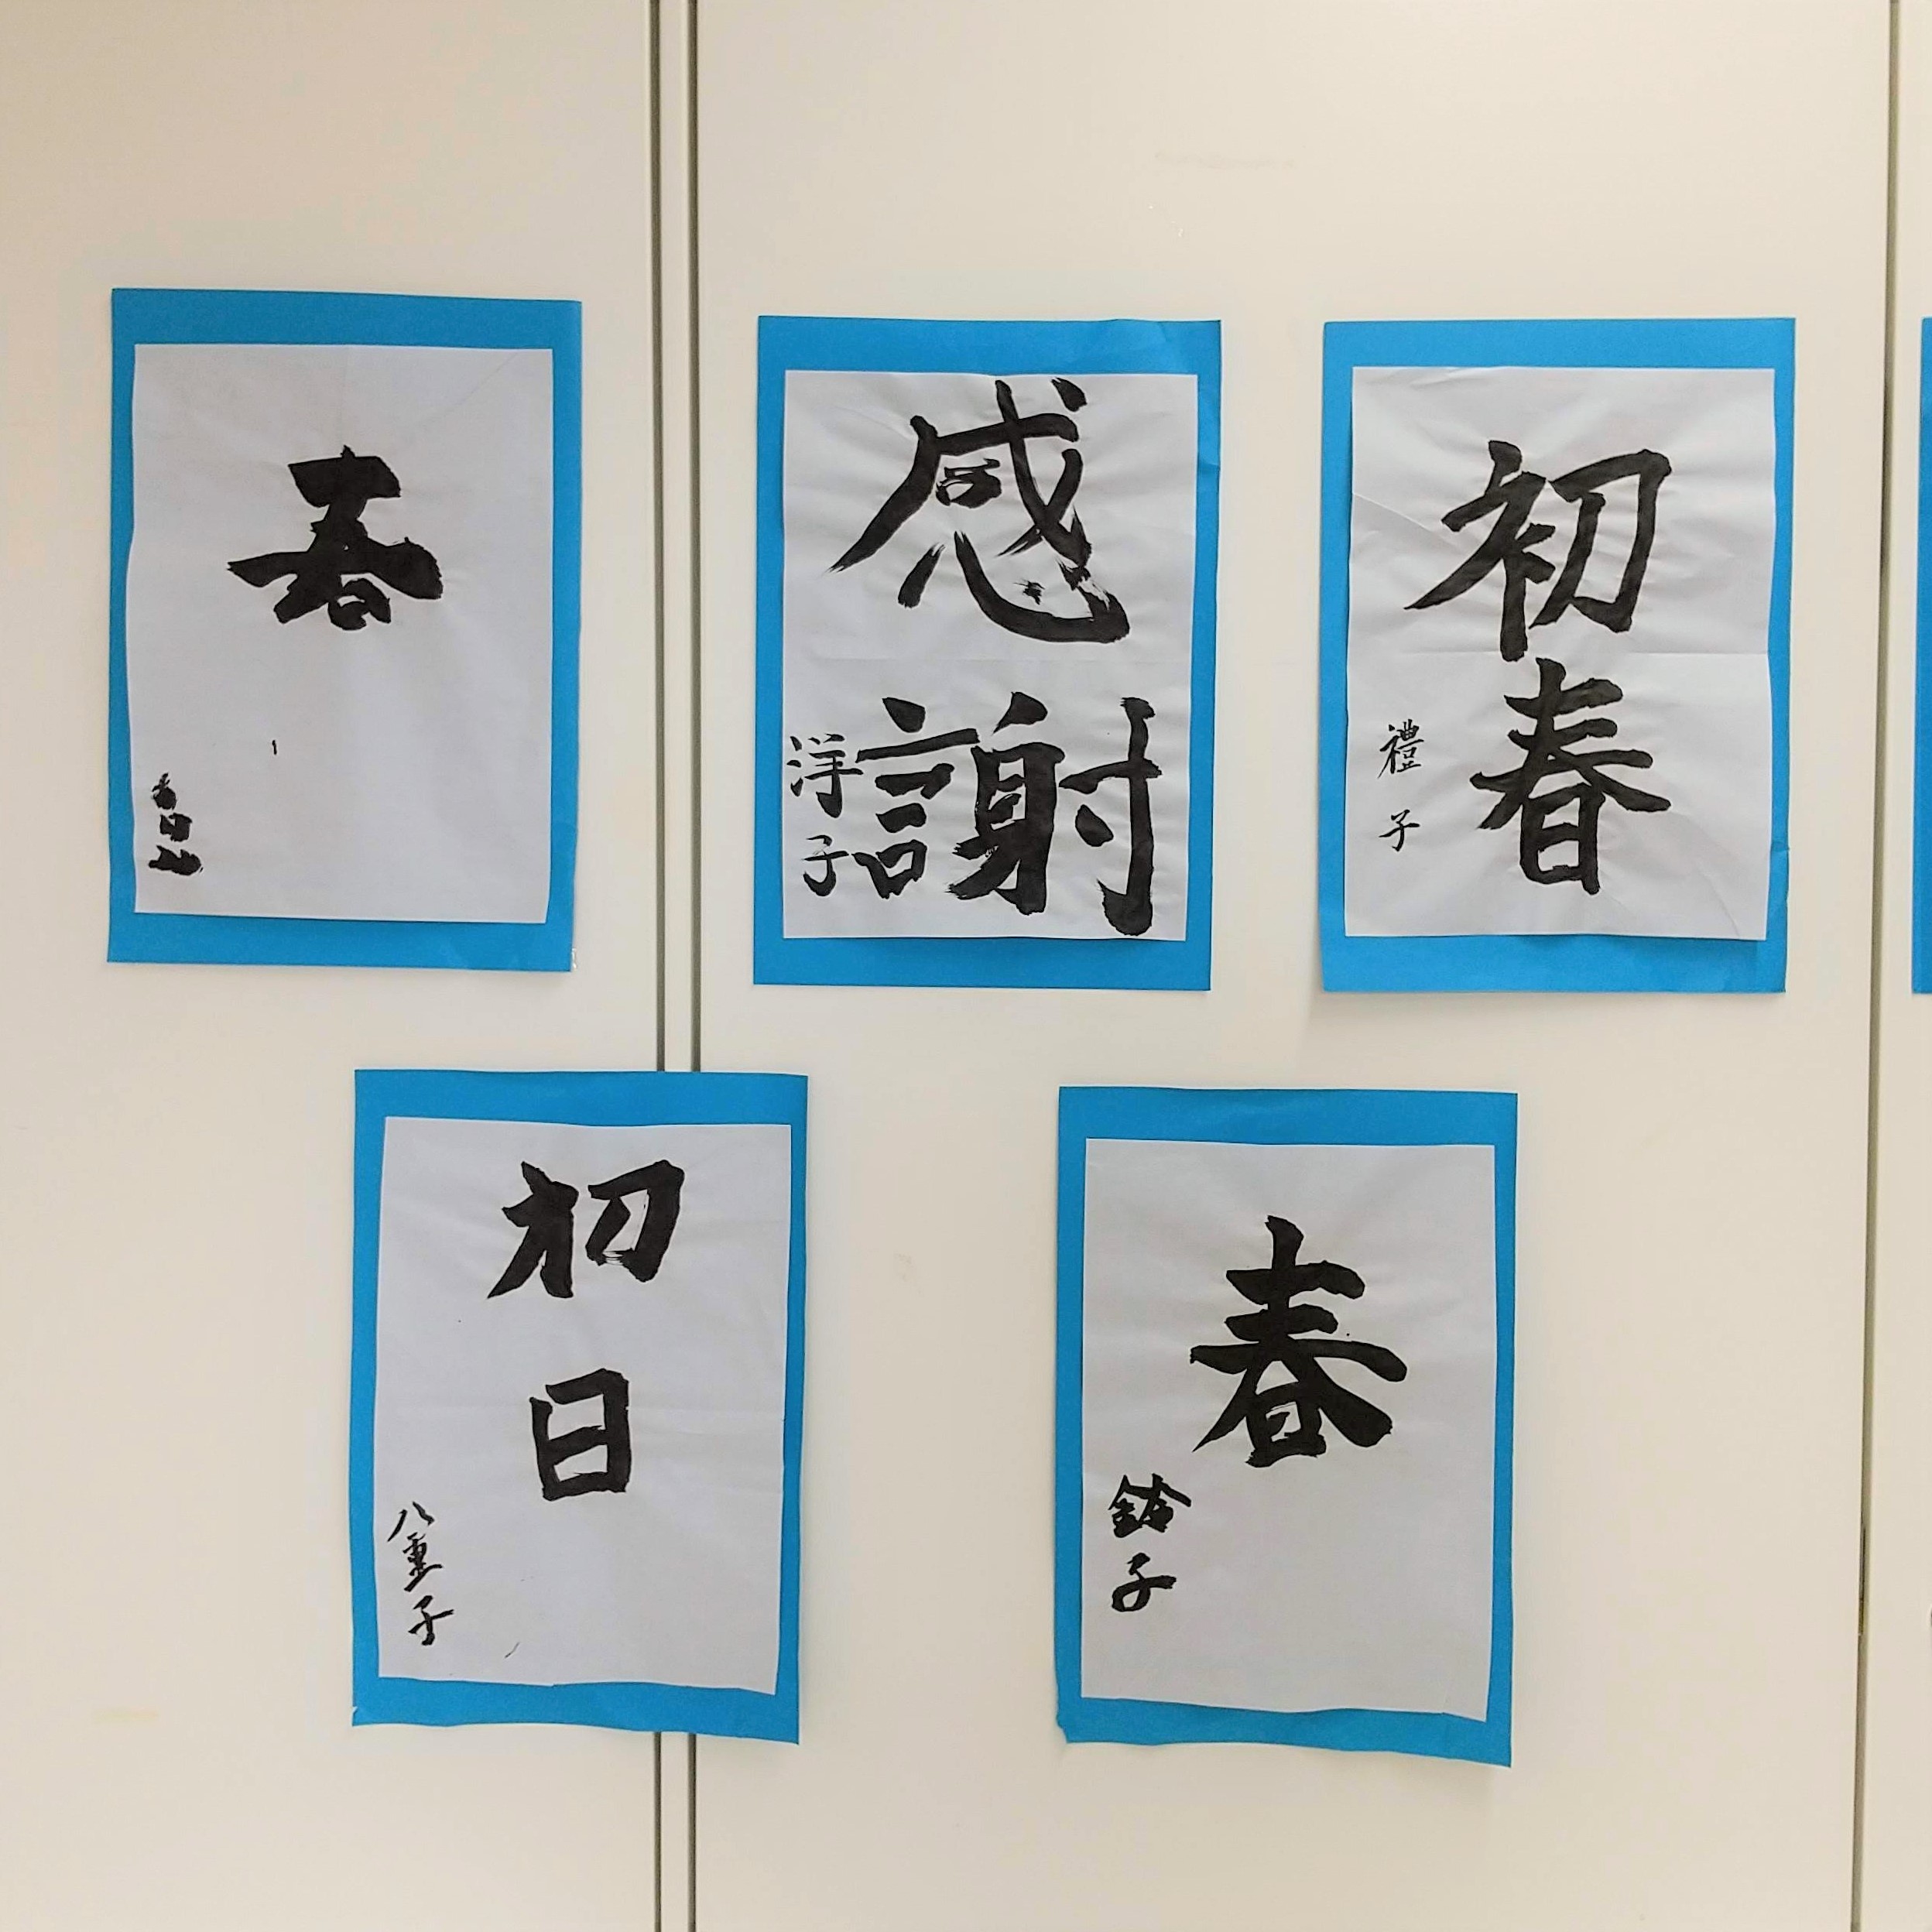 春
感謝
洋子
初春
禮子
初日
八重子
春
鈴子